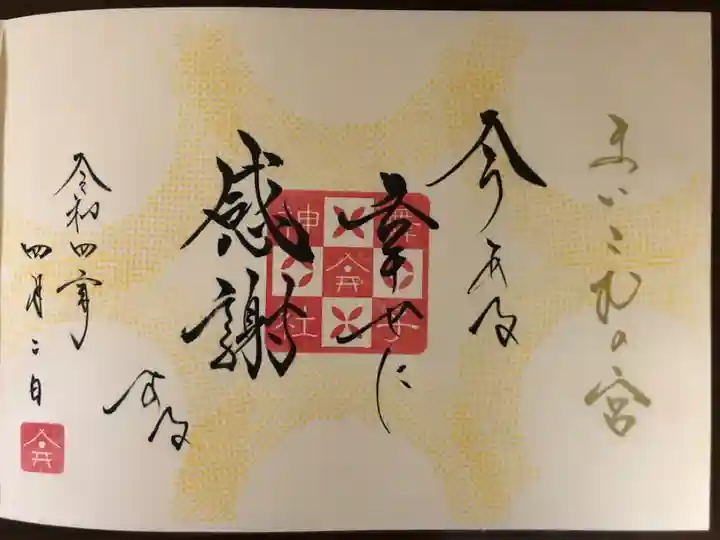 まいこ の宮
今ある
幸せに
感謝
する
令和四年
四月二日
舞子
神社